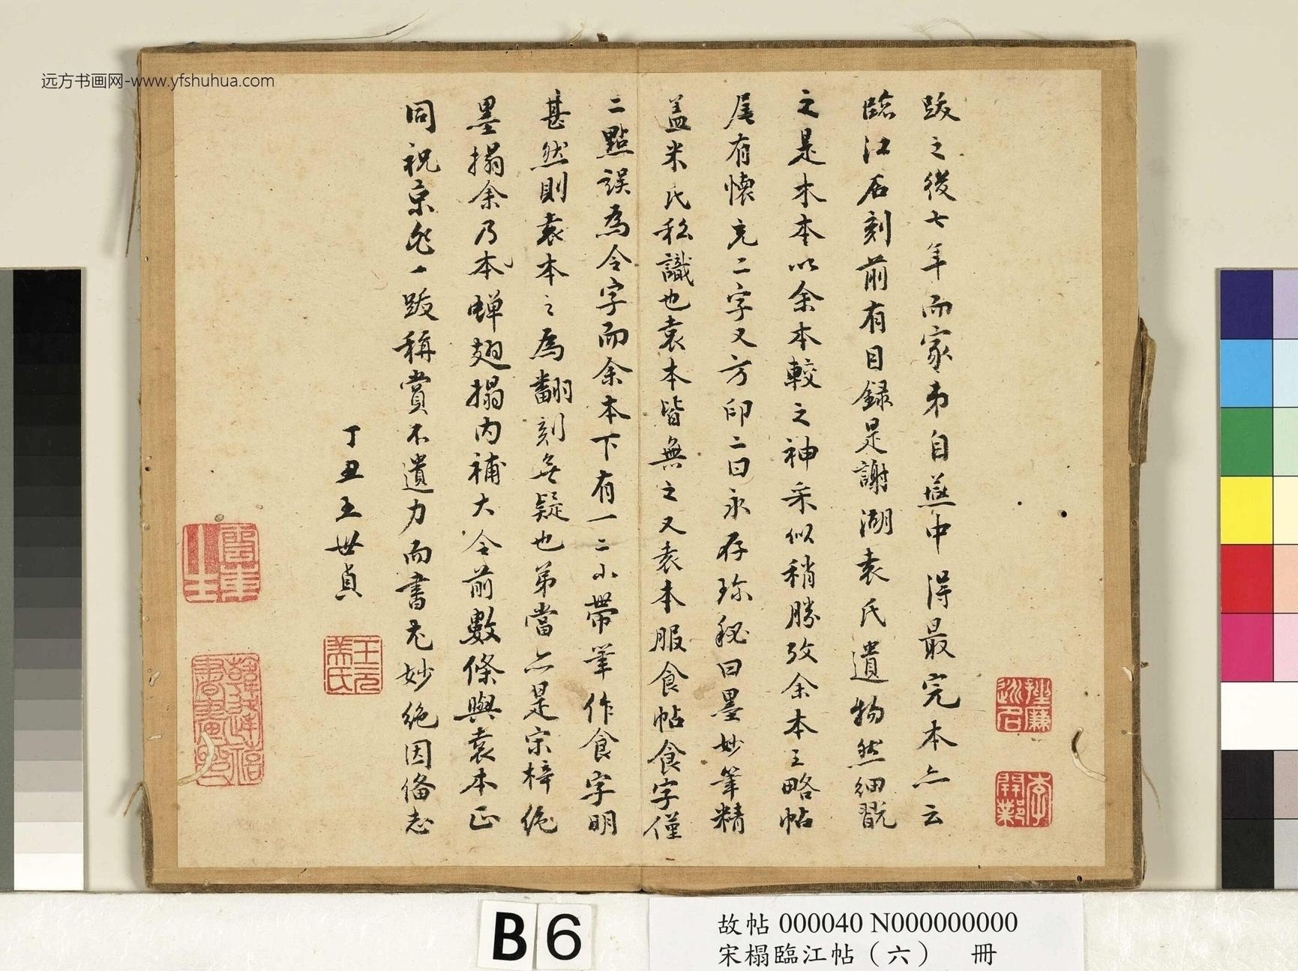 远方书画网-www.yfshuhua.com
跋之後七年而家弟自燕中得最完本亦云
臨江石刻前有目錄是謝湖袁氏遺物然細翫
之是木本以余本較之神采似稍勝攷余本王略帖
尾有懷充二字又方印二曰永存珎秘曰墨妙筆精
盖米氏私識也袁本皆無之又袁本服食帖食字僅
二點誤為令字而余本下有一二小帶筆作食字明
甚然則袁本之為翻刻無疑也第當亦是宋梓絶
墨搨余乃本蟬翅搨內補大令前數條與袁本正
同祝京兆一跋稱賞不遺力而書尤妙絕因俻志
丁丑王世貞
王元美氏
B6
故帖 000040 N000000000
宋榻臨江帖（六） 冊